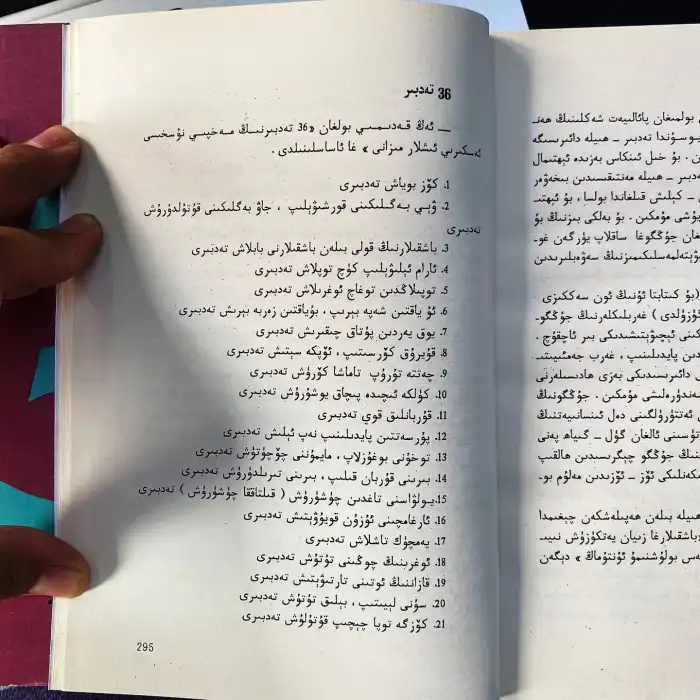 36 تەدبىر
— ئەڭ قەدىمىي بولغان «36 تەدبىرنىڭ مەخپىي نۇسخىسى
ئەسكىرىي ئىشلار مىزانى» غا ئاساسلىنىلدى.
1. كۆز بوياش تەدبىرى
2. ۋېي بەگلىكىنى قورشىۋېلىپ، جاۋ بەگلىكىنى قۇتۇلدۇرۇش
تەدبىرى
3. باشقىلارنىڭ قولى بىلەن باشقىلارنى بابلاش تەدبىرى
4. ئارام ئېلىۋېلىپ كۈچ توپلاش تەدبىرى
5. توپىلاڭدىن توغاچ ئوغرىلاش تەدبىرى
6. ئۇ ياقتىن شەپە بېرىپ، بۇياقتىن زەربە بېرىش تەدبىرى
7. يوق يەردىن پۇتاق چىقىرىش تەدبىرى
8. قۇيرۇق كۆرسىتىپ، ئۆپكە سېتىش تەدبىرى
9. چەتتە تۇرۇپ تاماشا كۆرۈش تەدبىرى
10. كۈلكە ئىچىدە پىچاق يوشۇرۇش تەدبىرى
11. قۇربانلىق قوي تەدبىرى
12. پۇرسەتتىن پايدىلىنىپ نەپ ئېلىش تەدبىرى
13. توخۇنى بوغۇزلاپ، مايمۇننى چۆچۈتۈش تەدبىرى
14. بىرىنى قۇربان قىلىپ، بىرىنى تىرىلدۈرۈش تەدبىرى
15. يولۋاسنى تاغدىن چۈشۈرۈش (قىلتاققا چۈشۈرۈش) تەدبىرى
16. ئارغامچىنى ئۇزۇن قويۇۋېتىش تەدبىرى
17. يەمچۈك تاشلاش تەدبىرى
18. ئوغرىنىڭ چوڭىنى تۇتۇش تەدبىرى
19. قازاننىڭ ئوتىنى تارتىۋېتىش تەدبىرى
20. سۇنى لېيىتىپ، بېلىق تۇتۇش تەدبىرى
21. كۆزگە توپا چېچىپ قۇتۇلۇش تەدبىرى
295
بولمىغان پائالىيەت شەكلىنىڭ ھەتـ
يۇسۇندا تەدبىر ــ ھىيلە دائىرىسىگە
ن. بۇ خىل ئىنكاس بەزىدە ئېھتىمال
ەدبىر ــ ھىيلە مەنتىقىسىدىن بىخەۋەر
ــ كېلىش قىلغاندا بولسا، بۇ ئېھتىـ
يۈشى مۇمكىن. بۇ بەلكى بىزنىڭ بۇ
غان جۇڭگوغا ساقلاپ يۈرگەن غۇـ
ۋېتەلمەسلىكىمىزنىڭ سەۋەبلىرىدىن
(بۇ كىتابتا ئۇنىڭ ئون سەككىزى
ئۈزۈلدى) غەربلىكلەرنىڭ جۇڭگوـ
كىنى ئېچىۋېتىشىدىكى بىر ئاچقۇچ.
دىن پايدىلىنىپ، غەرب جەمئىيىتىـ
دائىرىسىدىكى بەزى ھادىسىلەرنى
ەندۈرەلىشى مۇمكىن. جۇڭگونىڭ
ئەتتۈرۈلگىنى دەل ئىنسانىيەتنىڭ
تۈسىنى ئالغان گۈل ــ گىياھ پەنى
نىڭ جۇڭگو چېگرىسىدىن ھالقىپ
كەنلىكى ئۆز ــ ئۆزىدىن مەلۇم بوـ
ھىيلە بىلەن ھەپىلەشكەن چېغىمدا
باشقىلارغا زىيان يەتكۈزۈش نىيىـ
ەس بولۇشىنىمۇ ئۇنتۇماڭ» دېگەن